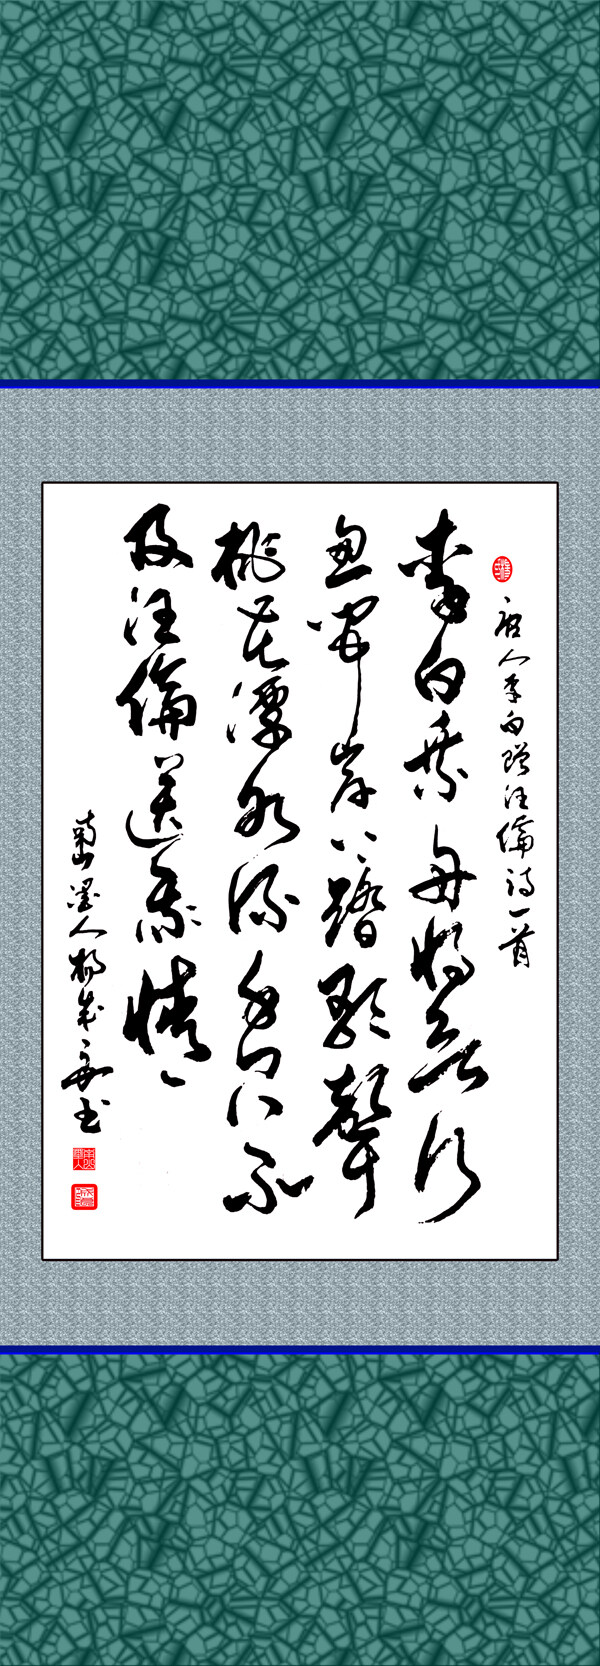 唐人李白赠汪倫诗一首
李白乘舟将欲行
忽闻岸上踏歌聲
桃花潭水深千尺不
及汪倫送我情
南山墨人楊成书